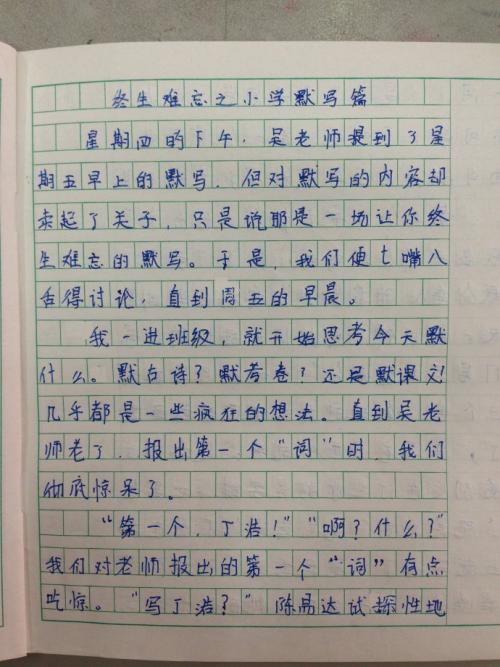 终生难忘之小学默写篇
星期四的下午，吴老师提到了星
期五早上的默写，但对默写的内容却
卖起了关子，只是说那是一场让你终
生难忘的默写。于是，我们便七嘴八
舌得讨论，直到周五的早晨。
我一进班级，就开始思考今天默
什么。默古诗？默考卷？还是默课文！
几乎都是一些疯狂的想法。直到吴老
师老了，报出第一个“词”时，我们
彻底惊呆了。
“第一个，丁浩！”“啊？什么？”
我们对老师报出的第一个“词”有点
吃惊。“写丁浩？”陈易达试探性地